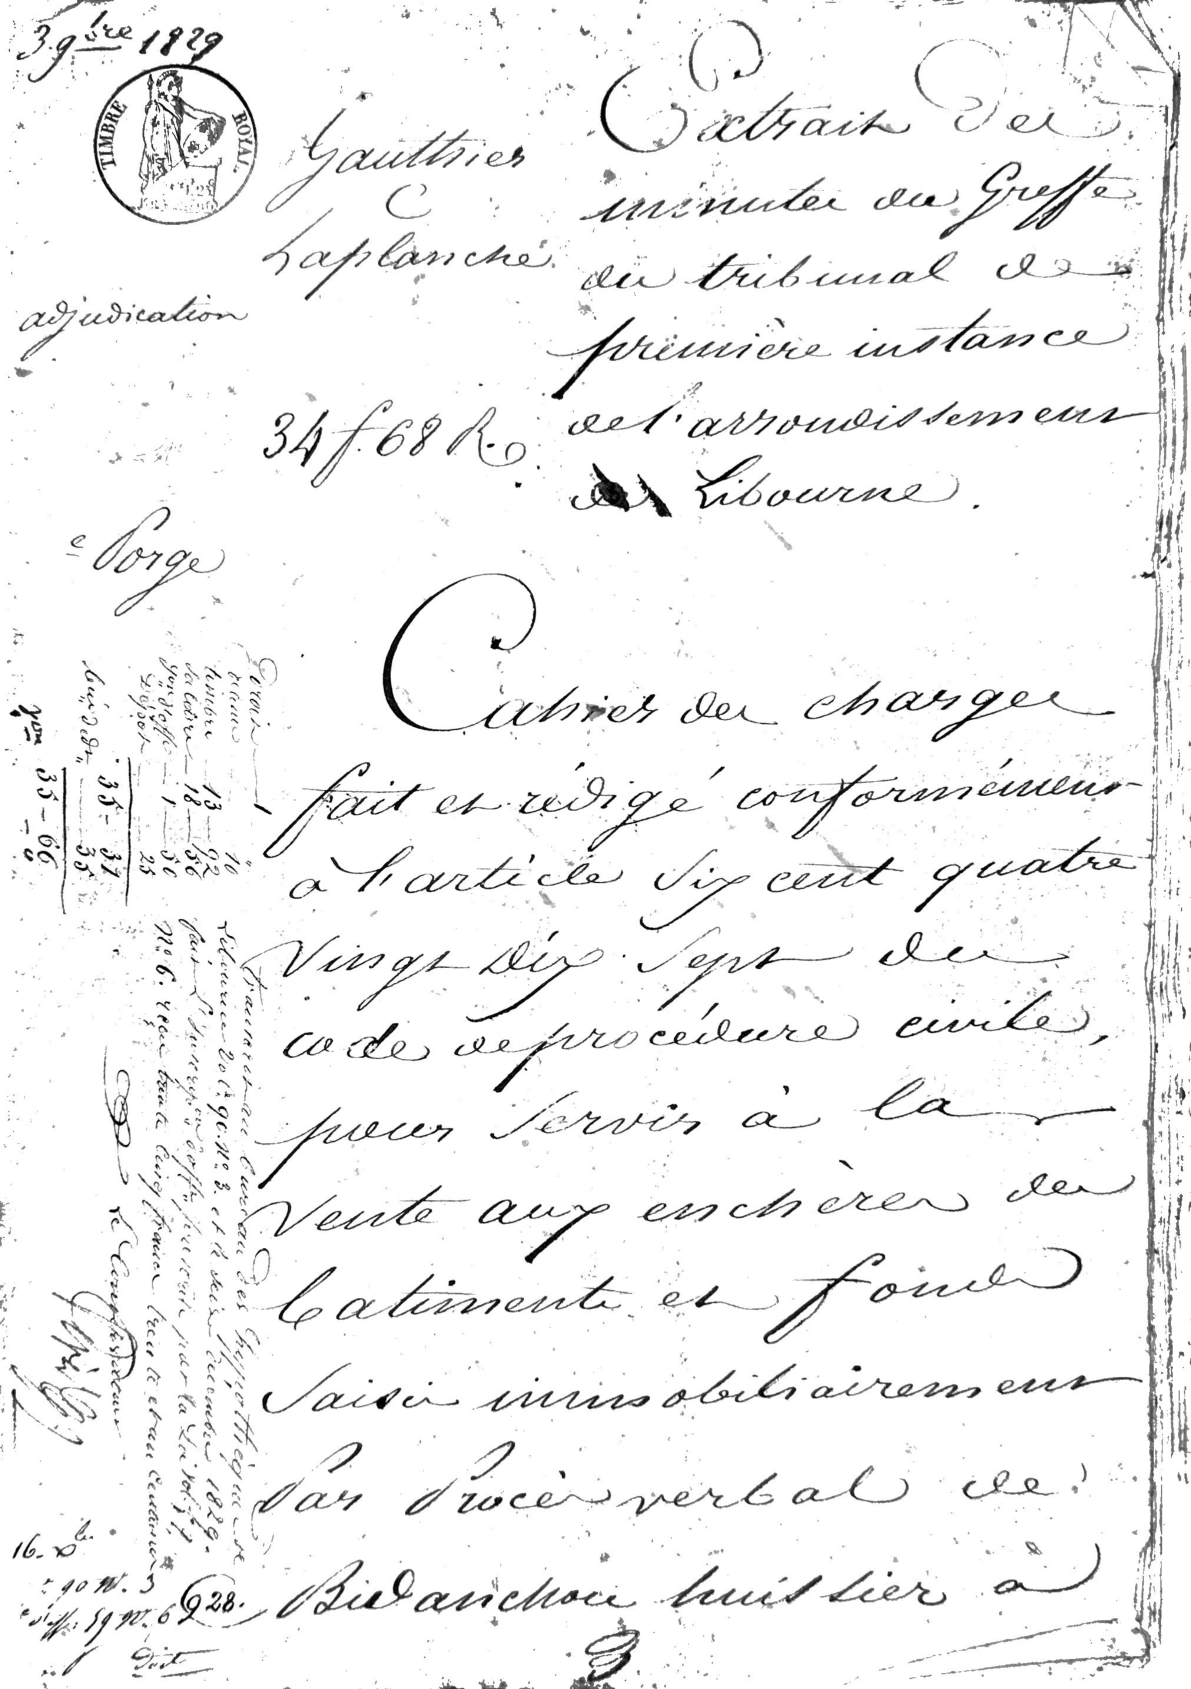 3 9bre 1829
TIMBRE ROYAL
Gauthier
C
Laplanche
adjudication
34 f. 68 R.
e Porge
Extrait des
minutes du Greffe
du tribunal de
première instance
de l'arrondissement
de Libourne.
Cahier des charges
fait et rédigé conformément
à l'article six cent quatre
vingt dix sept du
code de procédure civile,
pour servir à la
vente aux enchères des
batiments et fonds
saisis immobiliairement
Par Procès verbal de
Bidanchon huissier à
3
timbre 13-92
salaire 18-56
1-50
Dépot 25
35-37
35
35-66
Transcrit au bureau des hypothèques de
Libourne vol. 90. N.º 3. et le seize décembre 1829.
N.º 6. reçu trente cinq francs trente et un centimes
Le Conservateur
16. Xb.
90 N. 3
59 N. 6
928.
Doit